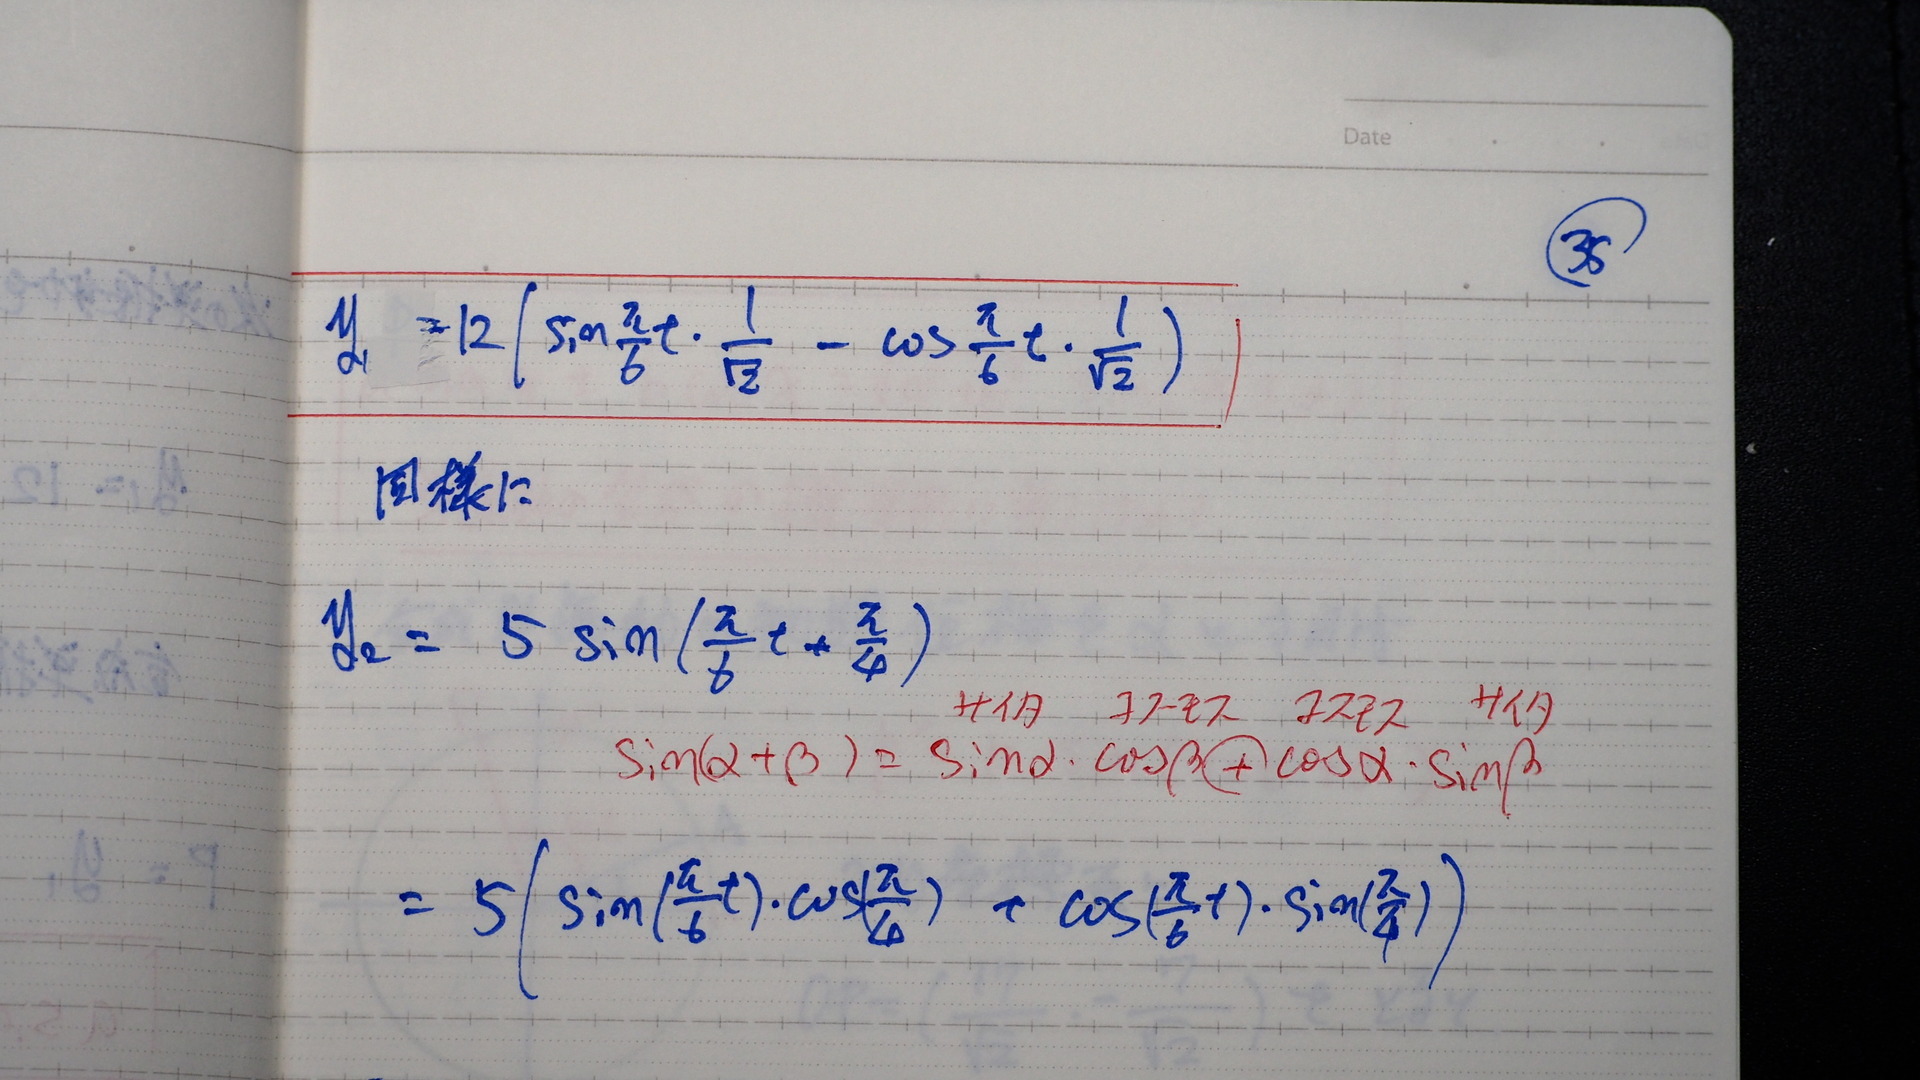 Date
36
y₁ = 12 ( sin π/6 t · 1/√2 - cos π/6 t · 1/√2 )
同様に
y₂ = 5 sin ( π/6 t + π/4 )
サイタ コスモス コスモス サイタ
sin(α+β) = sinα · cosβ + cosα · sinβ
= 5 ( sin(π/6 t) · cos(π/4) + cos(π/6 t) · sin(π/4) )